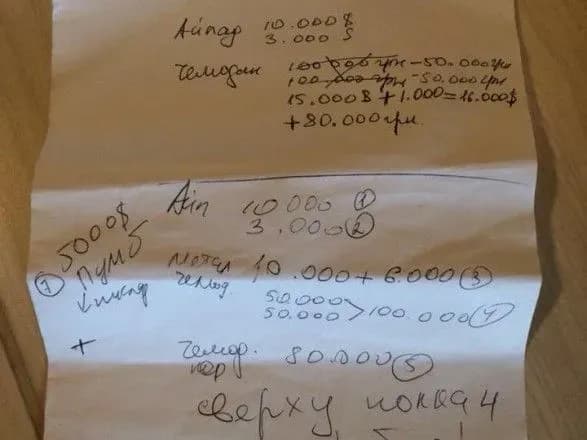 Айпад 10.000$
3.000$
Чемодан 100 000 грн - 50.000грн
100 000 грн - 50.000грн
15.000$ + 1.000 = 16.000$
+ 80.000грн
Айп 10 000 ①
3.000 ②
5000$
Пумб
⑦
метал 10.000 + 6.000 ③
чемод.
50.000
50.000 > 100.000 ④
+
чемод. 80.000 ⑤
сверху